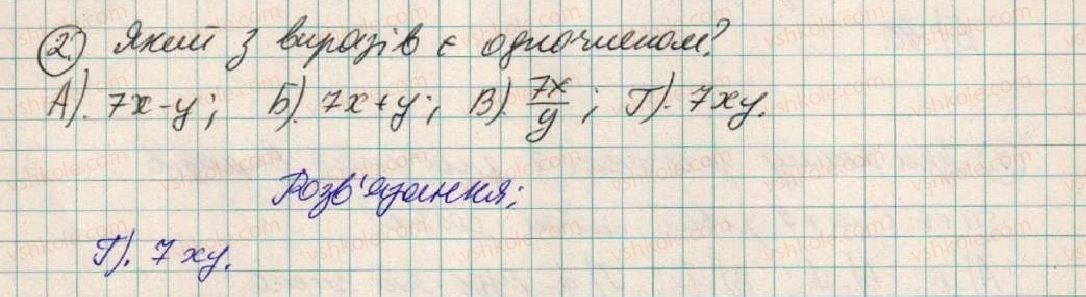 2) Який з виразів є одночленом?
А). 7x-y; Б). 7x+y; В). 7x/y; Г). 7xy.
Розв'язання:
Г). 7xy.